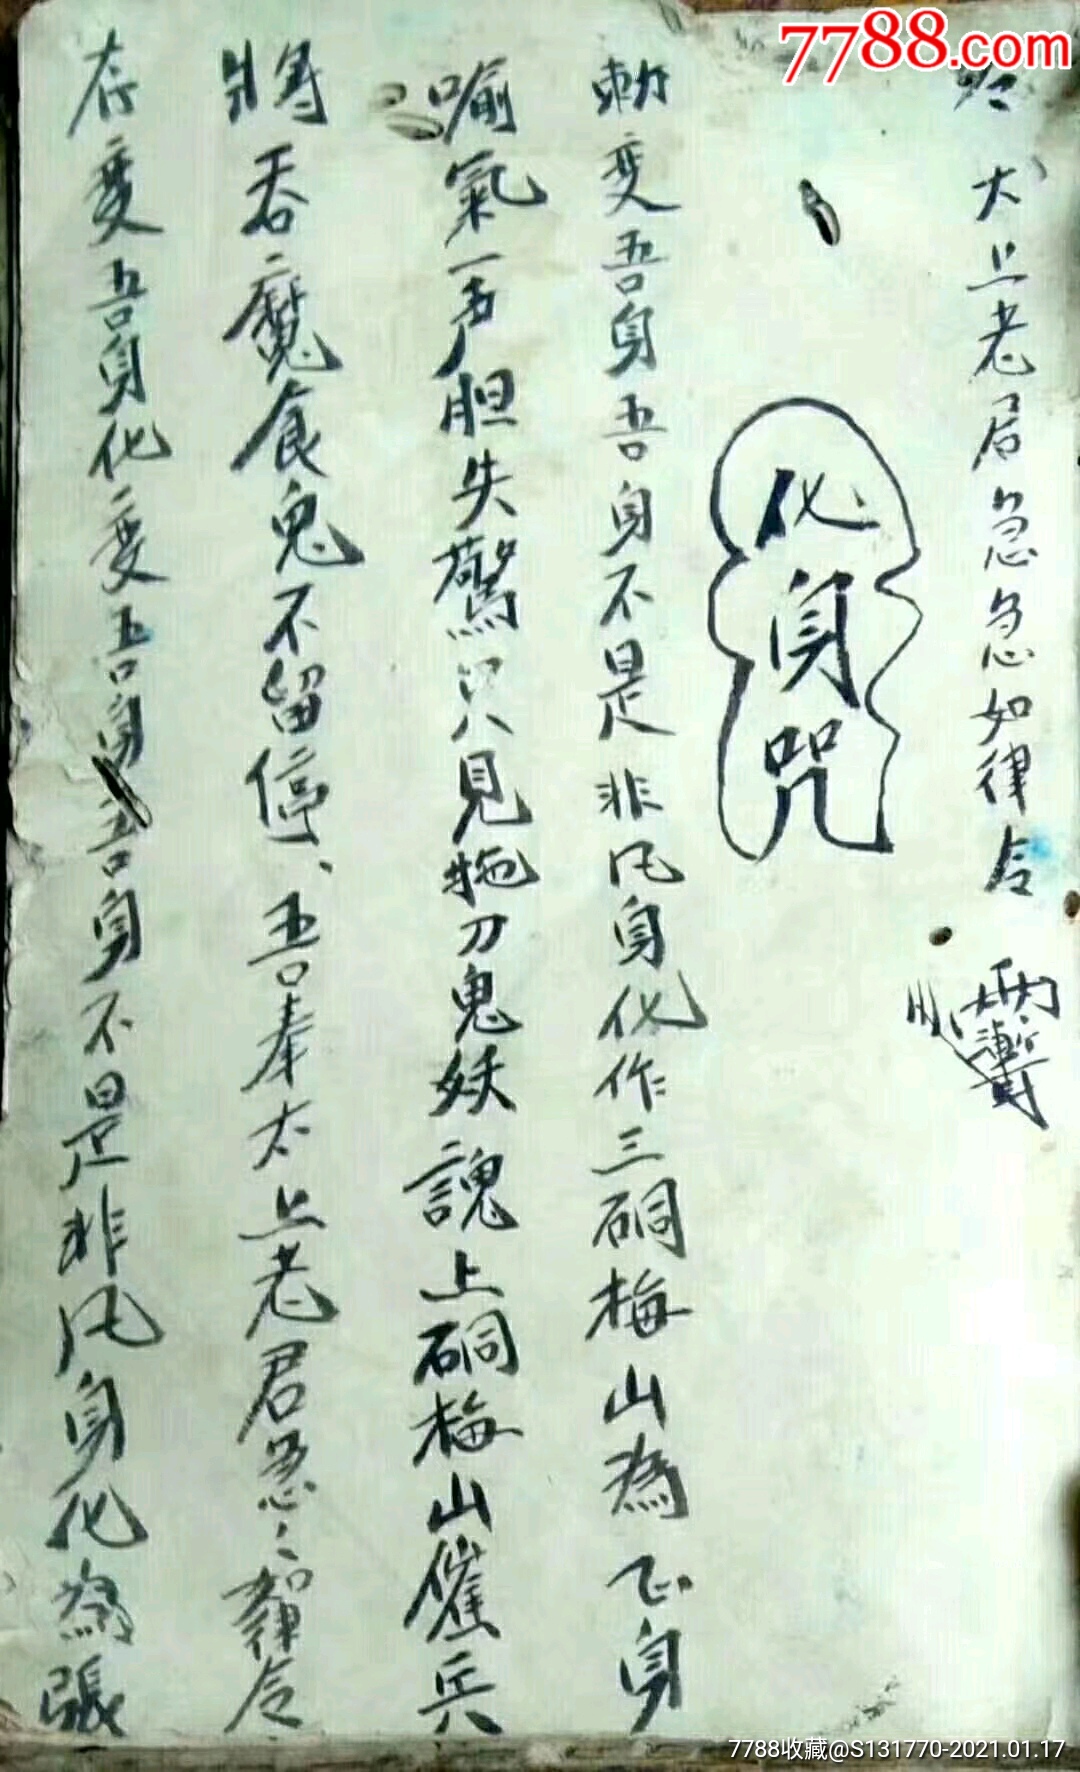 7788.com
太上老君急急如律令
化身咒
勅变吾身吾身不是非凡身化作三硐梅山為正身
喻氣一声胆失驚只見拖刀鬼妖 上硐梅山催兵
將吞魔食鬼不留停、吾奉太上老君急々如律令
存变吾身化变吾身吾身不是非凡身化為張
7788收藏@S131770-2021.01.17